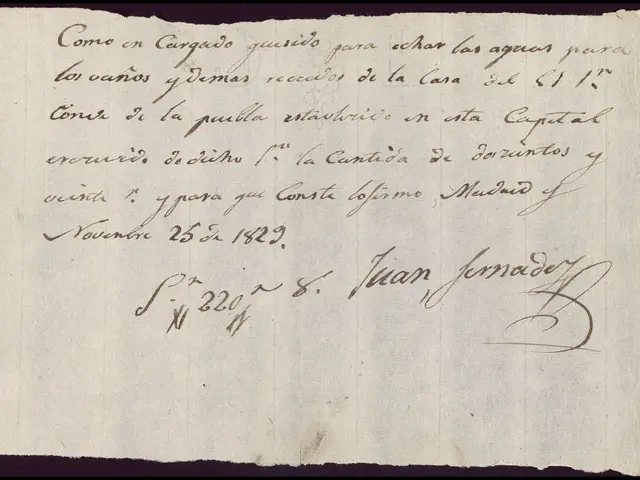 Como en Cargado quesido para echar las aguas para
los vaños ydemas recados de la Casa del S.r
Conde de la puebla establecido en esta Capital
erecivido dedicho S.or la Cantida de dosientos y
veinte r.s y para que Conste lofirmo, Madrid y
Novenbre 25 de 1829.
Son 220 r.s Juan, fernadez